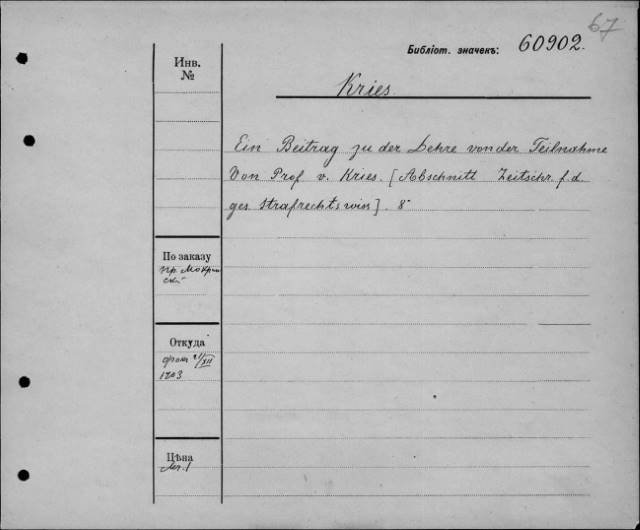 67
Библіот. значекъ: 60902.
Инв.
№
Kries.
Ein Beitrag zu der Lehre von der Teilnahme
Von Prof. v. Kries. [Abschnitt Zeitschr. f. d
ges. Strafrechtswiss]. 8°
По заказу
пр. Мокрин
ский
Откуда
21/XII
1903
Цѣна